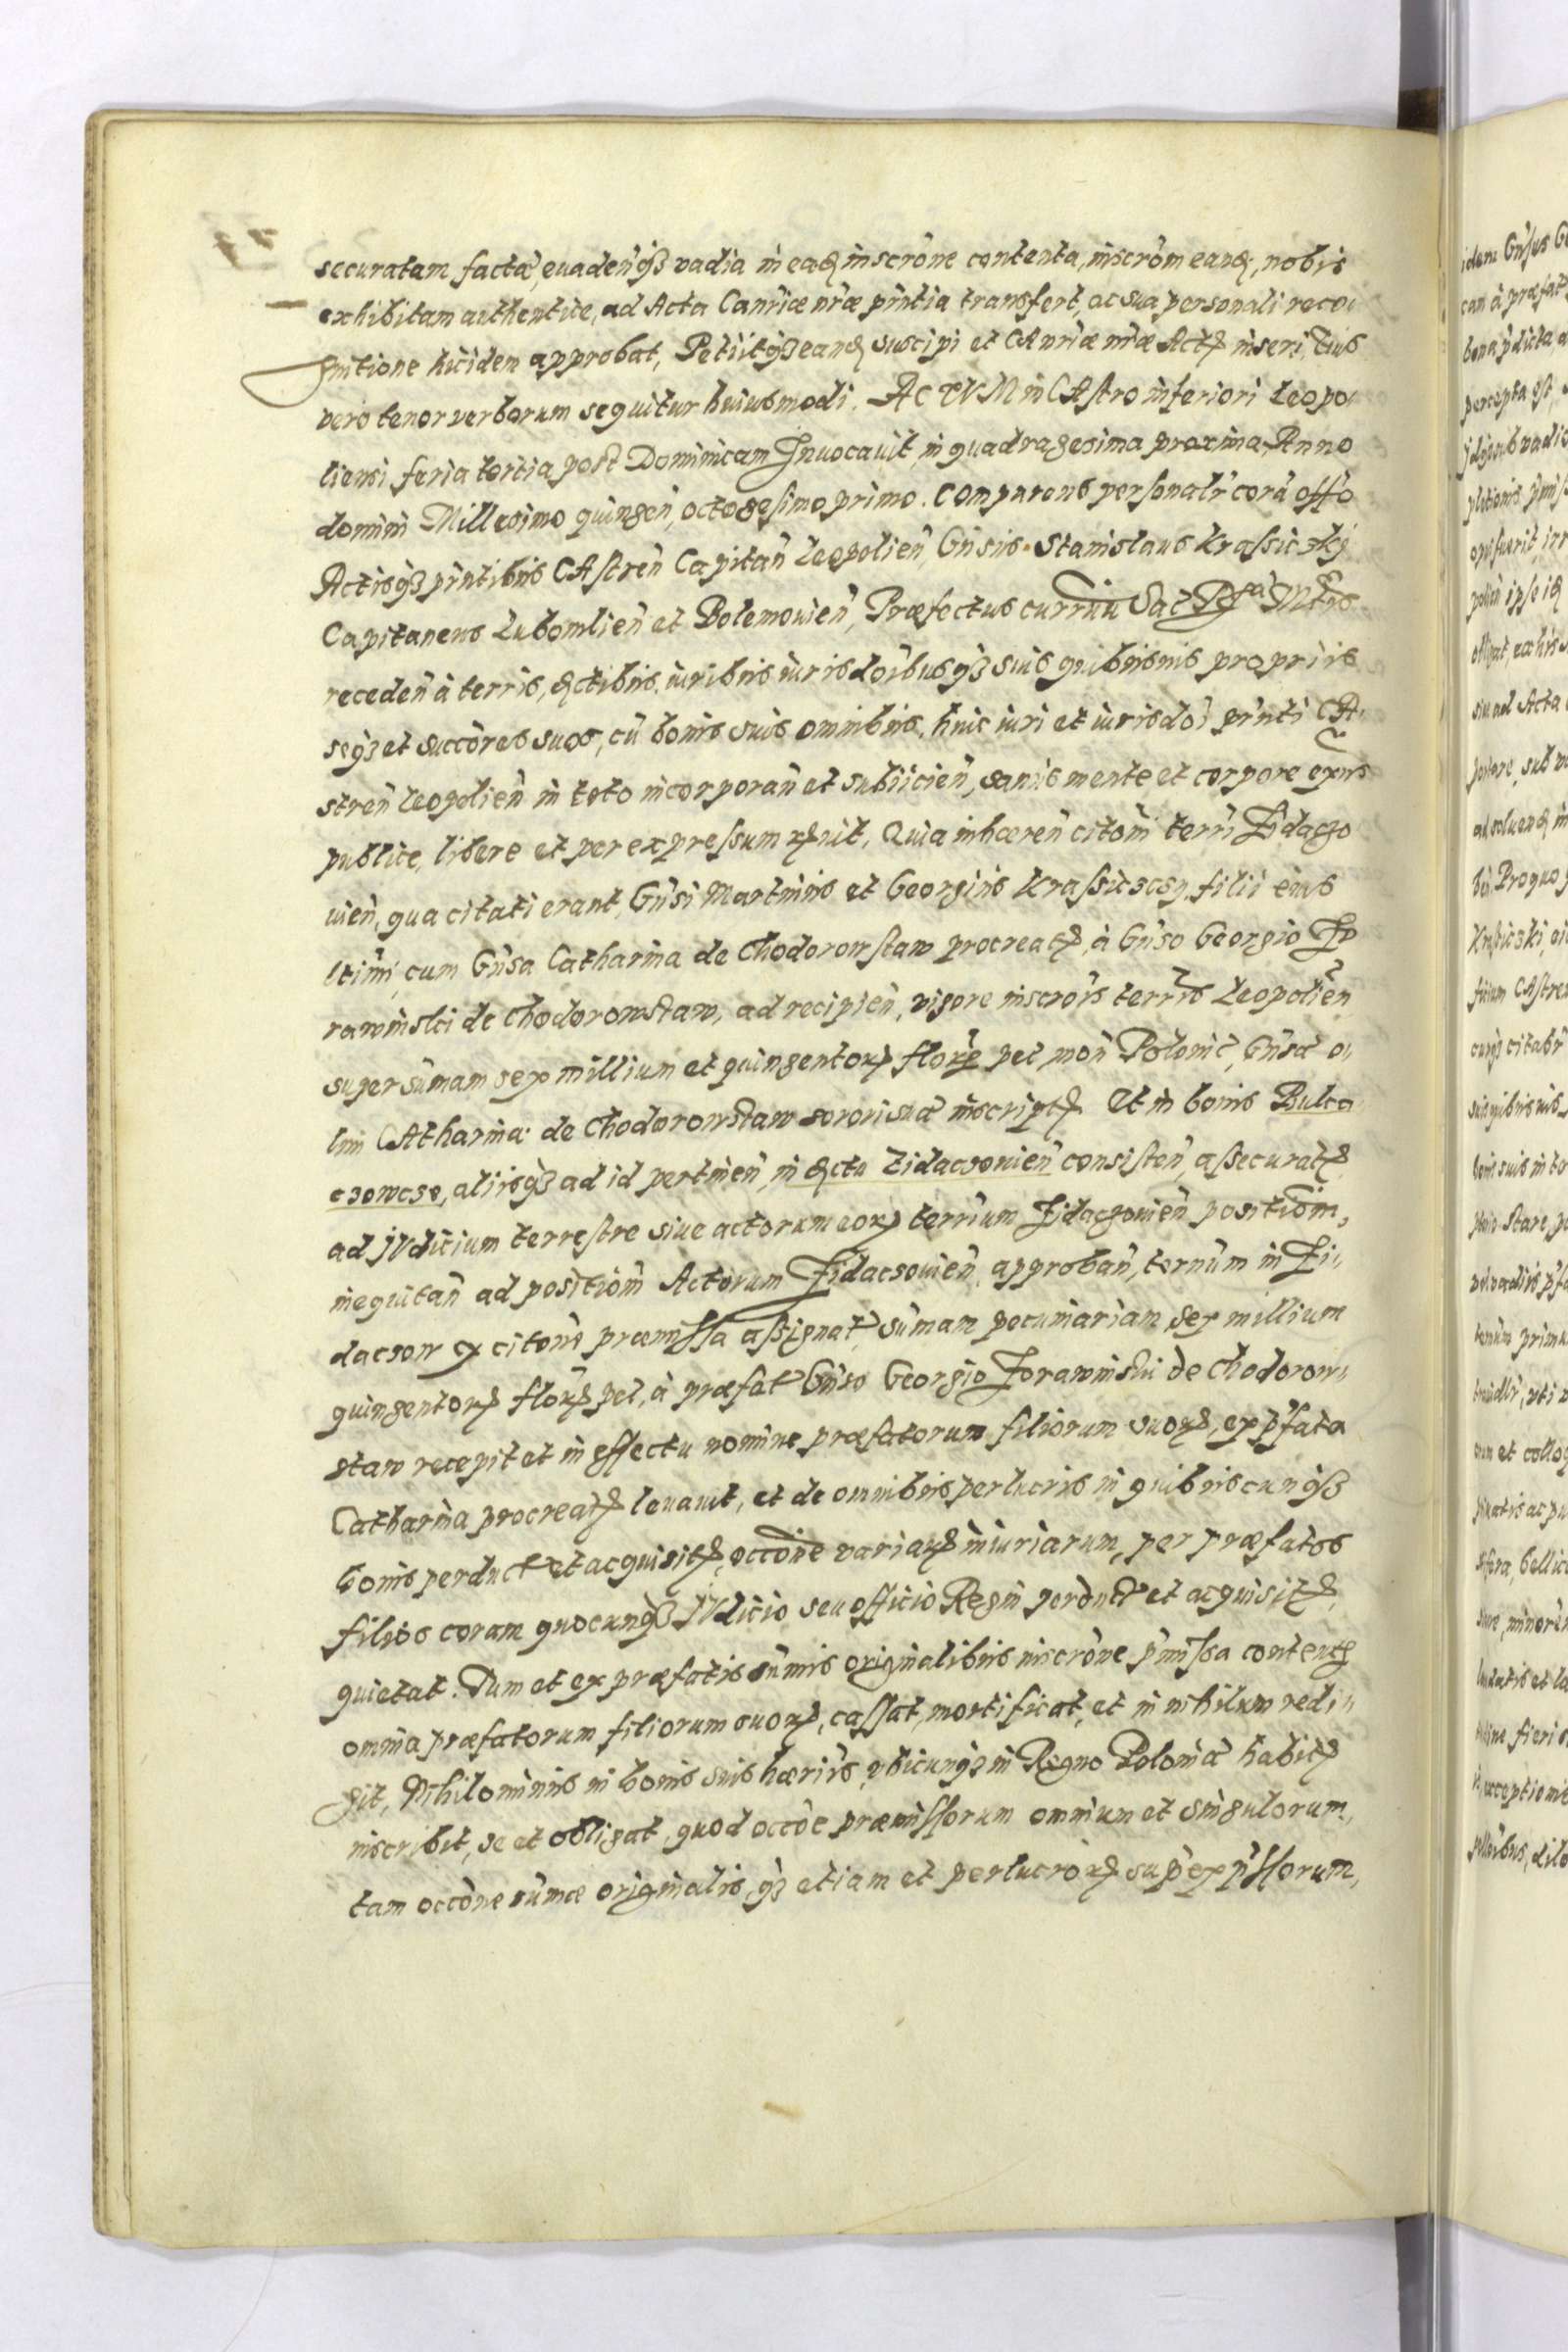 securatam factã, euadeñqз vadia in eadẽ inscrõne contenta, inscrõm eandẽ, nobis
exhibitam authentice, ad Acta Canrĩæ nr̃æ prñtia transfert, ac sua personali reco
gnitione hicidem approbat, Petiitqз eandẽ suscipi et CAnrĩæ nr̃æ Actis inseri, Cuius
vero tenor verborum sequitur huiusmodi. ACTVM in CAstro inferiori Leopo
liensi feria tertia post Dominicam Inuocauit, in quadragesima proxima, Anno
domini Millesimo quingeñ, octogesimo primo. Comparens personalr̃ corã offõ
Actisqз prñtibus CAstreñ Capitañ Leopolieñ, Gñsus Stanislaus Krassiczkj
Capitaneus Lubomlieñ et Bolemouieñ, Præfectus curruũ Sac
recedeñ à terris, dictibus, iuribus iurisdõibusqз suis quibusuis proprijs
seqз et succõres suos, cũ bonis suis omnibus, huic iuri et iurisdõi prñti CA
streñ Leopolieñ in toto incorporañ et subijcieñ, sanus mente et corpore exñs
publice, libere et per expressum recognouit, Quia inhæreñ citõni terrĩ Zidaczo
uieñ, qua citati erant, Gñsi Martinus et Georgius Krassiczscy, filii eius
ltimĩ, cum Gñsa Catharina de Chodorowstaw procreati, à Gñso Georgio Zo
rawinski de Chodorowstaw, ad recipieñ, vigore inscrõis terrĩs Leopolieñ
super sum̃am sex millium et quingentorum floreñ pec moñ Polonic̃, Gñsæ o
lim CAtharinæ de Chodorowstaw sorori suæ inscriptis et in bonis Bulca
czowcse, aliisqз ad id pertineñ, in dictu Zidaczouieñ consisteñ, assecuratis
ad JVdicium terrestre siue actorum eorum terrĩum Zidaczouieñ positiõm,
inequitañ ad positiõm Actorum Zidaczouieñ approbañ, ternũm in Zi
daczow ex citõne præmissa assignat, sum̃am pecuniariam sex millium
quingentorum florum pec, à præfat Gñso Georgio Zorawinski de Chodorow
staw recepit et in effectu nomine præfatorum filiorum suorum, ex p̃fata
Catharina procreatis leuauit, et de omnibus perlucris in quibuscunqз
bonis perduct et acquisitis, occõne variarum iniuriarum, per præfatos
filios coram quocunqз JVdicio seu officio Regni perduct et acquisitis,
quietat. Dum et ex præfatis sum̃is originalibus inscrõne p̃missa contentis
omnia præfatorum filiorum suorum, cassat, mortificat, et in nihilum redi
git, Nihilominus in bonis suis hærĩis, vbicunqз in Regno Poloniæ habitis
inscribit, se et obligat, quod occõe præmissorum omnium et singulorum,
tam occõne sum̃æ originalis, qз etiam et perlucrorum sup̃ exp̃ssorum,